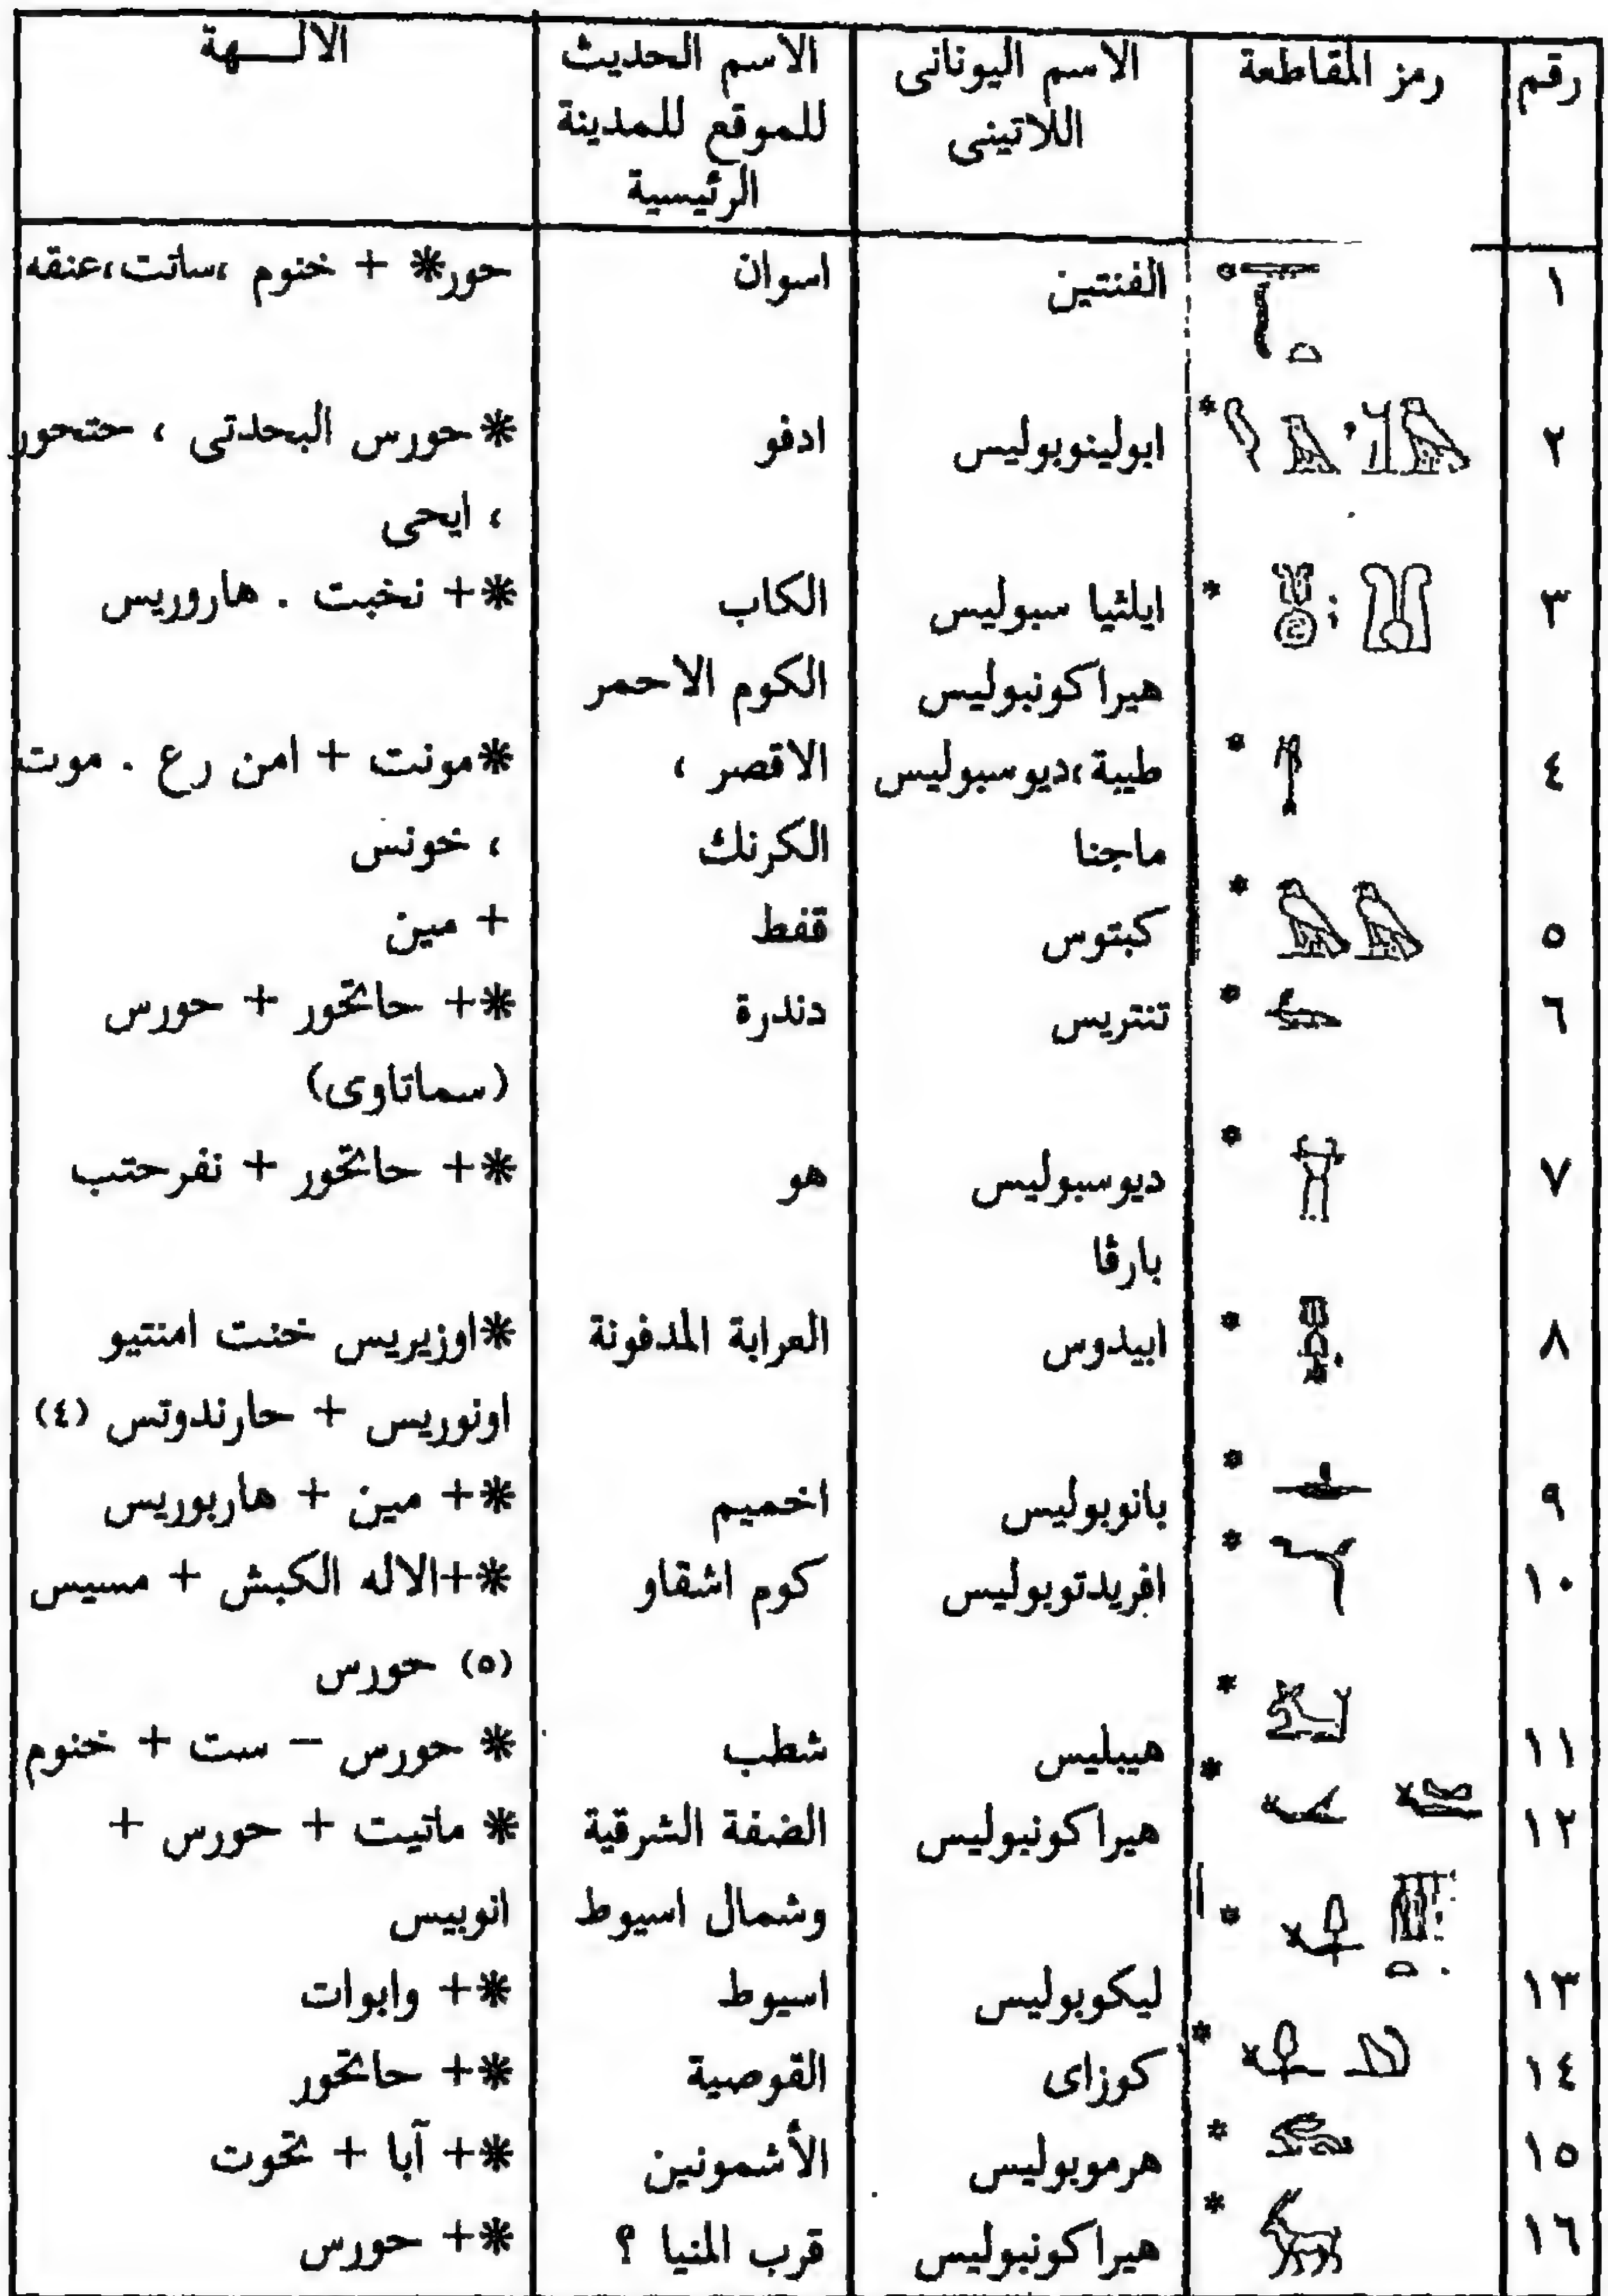 رقم رمز المقاطعة الاسم اليونانى الاسم الحديث الالـــهة
اللاتينى للموقع للمدينة
الرئيسية
١ الفنتين اسوان حور* + خنوم ،ساتت،عنقه
٢ * ابولينوبوليس ادفو *حورس البحدتى ، حتحور
، ايحى
٣ * ايلثيا سبوليس الكاب *+ نخبت . هاروريس
هيراكونبوليس الكوم الاحمر
٤ * طيبة،ديوسبوليس الاقصر ، *مونت + امن رع . موت
ماجنا الكرنك ، خونس
٥ * كبتوس قفط + مين
٦ * تنتريس دندرة *+ حاتحور + حورس
(سماتاوى)
٧ * ديوسبوليس هو *+ حاتحور + نفرحتب
بارڤا
٨ * ابيدوس العرابة المدفونة *اوزيريس خنت امنتيو
اونوريس + حارندوتس (٤)
٩ * بانوبوليس اخميم *+ مين + هاربوريس
١٠ * افريدتوبوليس كوم اشقاو *+الاله الكبش + مسيس
(٥) حورس
١١ * هيبليس شطب * حورس – ست + خنوم
١٢ * هيراكونبوليس الضفة الشرقية * ماتيت + حورس +
وشمال اسيوط انوبيس
١٣ * ليكوبوليس اسيوط *+ وابوات
١٤ * كوزاى القوصية *+ حاتحور
١٥ * هرموبوليس الأشمونين *+ آبا + تحوت
١٦ * هيراكونبوليس قرب المنيا ؟ *+ حورس